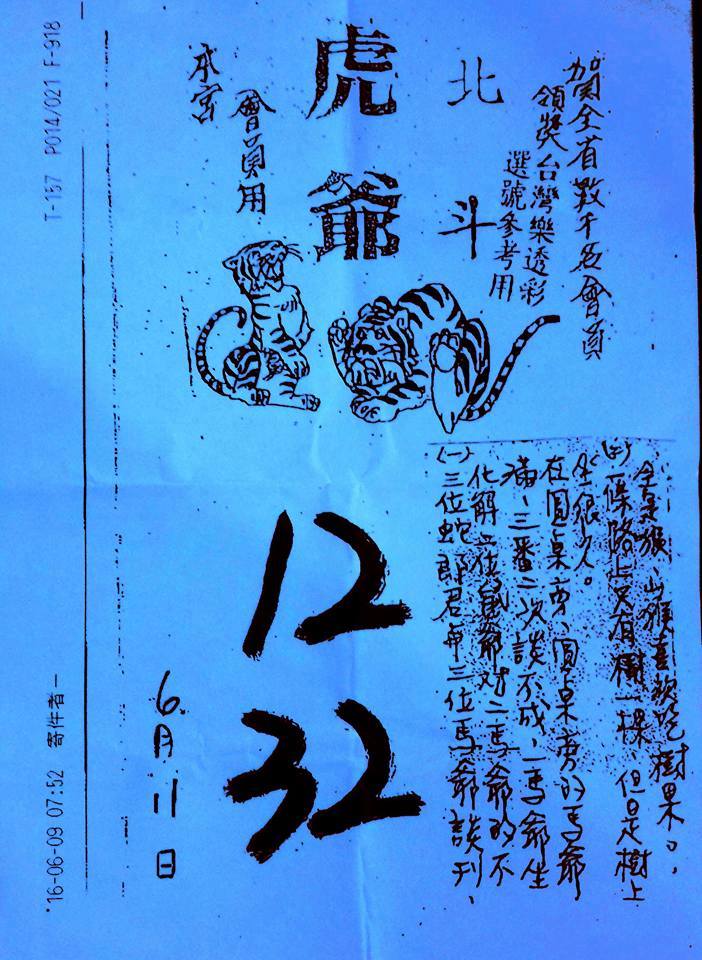 賀全省數千名會員
領獎台灣樂透彩
選號參考用
北斗
虎爺
會員用
本宮
12
32
6月11日
(一)
三位蛇郎君與三位馬爺談判、
化解三位鼠爺对二馬爺的不
滿、三番二次談不成、一馬爺生
在圓桌旁、圓桌旁的馬爺
坐很久。
(二)
一條路上只有樹一棵但是樹上
全是猴、山猴喜歡吃樹果。
'16-06-09 07:52 寄件者-
T-157 P014/021 F-918